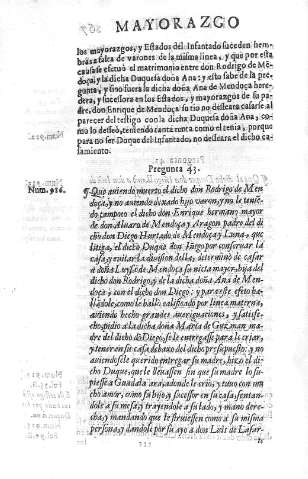 MAYORAZGO
los mayorazgos, y Estados del Infantado suceden hem-
bras a falta de varones de la misma linea, y que por esta
causa se efetuò el matrimonio entre don Rodrigo de Me-
doça, y la dicha Duquesa doña Ana: y esto sabe de la pre-
gunta, y sino fuera la dicha doña Ana de Mendoça here-
dera, y sucessora en los Estados, y mayorazgos de su pa-
dre, don Enrique de Mendoça su tio no desseara casarse al
parecer del testigo con la dicha Duquesa doña Ana, co-
mo lo desseò, teniendo tanta renta como el tenia, porque
para no ser Duque del Infantado, no desseara el dicho ca-
samiento.
Pregunta 43.
Num. 926.
Que auiendo muerto el dicho don Rodrigo de Men-
doça, y no auiendo dexado hijo varon, y no le tenië-
do tampoco el dicho don Enrique hermano mayor
de don Aluaro de Mendoça y Aragon padre del di-
cho don Diego Hurtado de Mendoça y Luna que
litiga, el dicho Duque don Iñigo por conseruar la
casa, y euitar la dissension della, determinò de casar
a doña Luysa de Mendoça su nieta mayor, hija del
dicho don Rodrigo, y de la dicha doña Ana de Men-
doça, con el dicho don Diego; y para este efeto ha-
llandole, como le hallò, calificado por linea materna,
auiendo hecho grandes aueriguaciones, y satisfe-
cho, pidio a la dicha doña Maria de Guzman ma-
dre del dicho don Diego, se le entregasse para le criar,
y tener en su casa debaxo del dicho presupuesto; y no
auiendosele querido entregar su madre, hizo el di-
cho Duque, que le lleuassen sin que su madre lo su-
piesse a Guadalajara, adonde le criò, y tuuo con mu-
cho amor, como su hijo, y sucessor en su casa, sentan-
dole a su mesa, y trayendole a su lado, y mano dere-
cha, y mandando que le siruiessen como a su misma
persona, y dandole por su ayo a don Luis de Lasar-